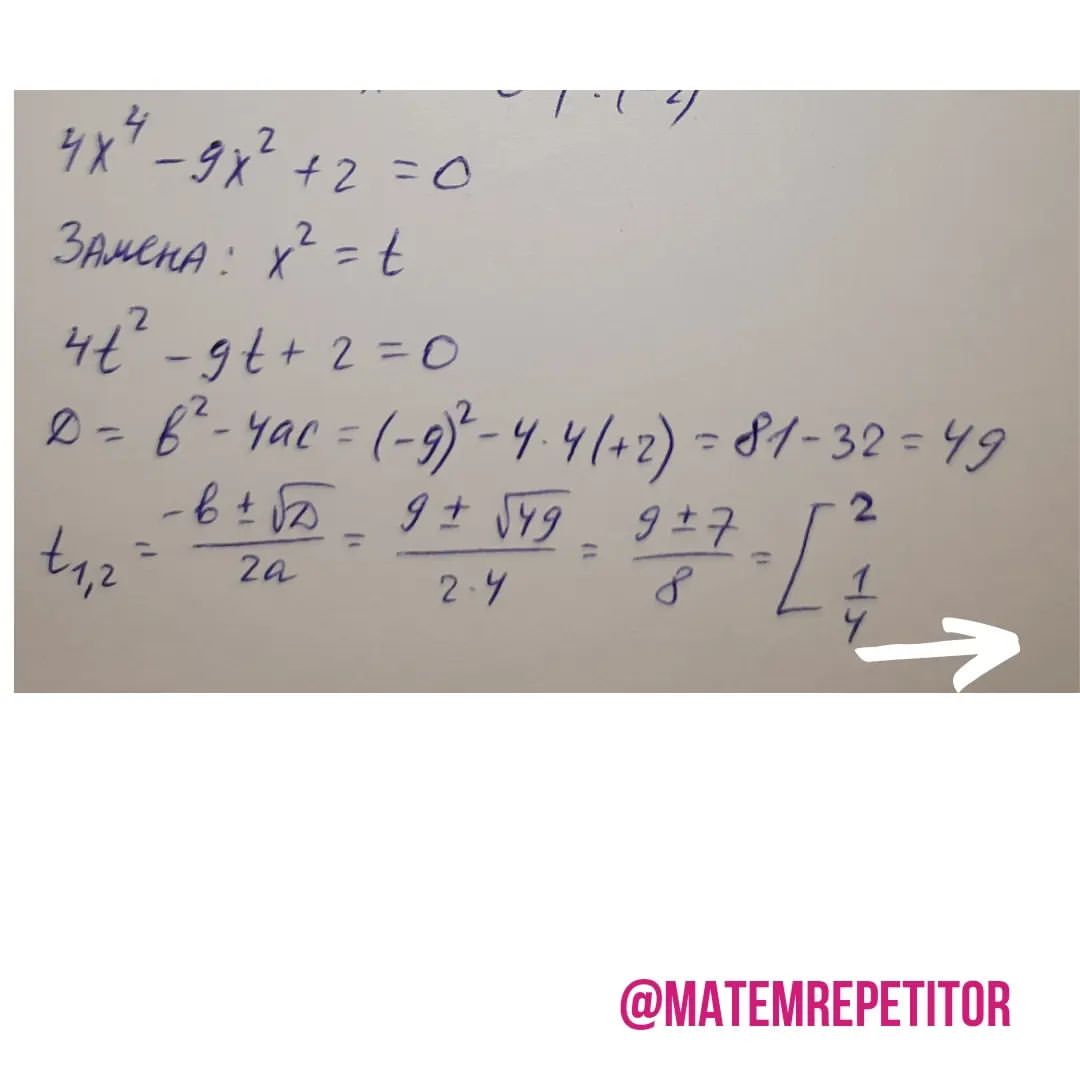 4x⁴ - 9x² + 2 = 0
Замена: x² = t
4t² - 9t + 2 = 0
D = b² - 4ac = (-9)² - 4·4(+2) = 81 - 32 = 49
t₁,₂ = (-b ± √D)/(2a) = (9 ± √49)/(2·4) = (9 ± 7)/8 = [2; 1/4
@MATEMREPETITOR